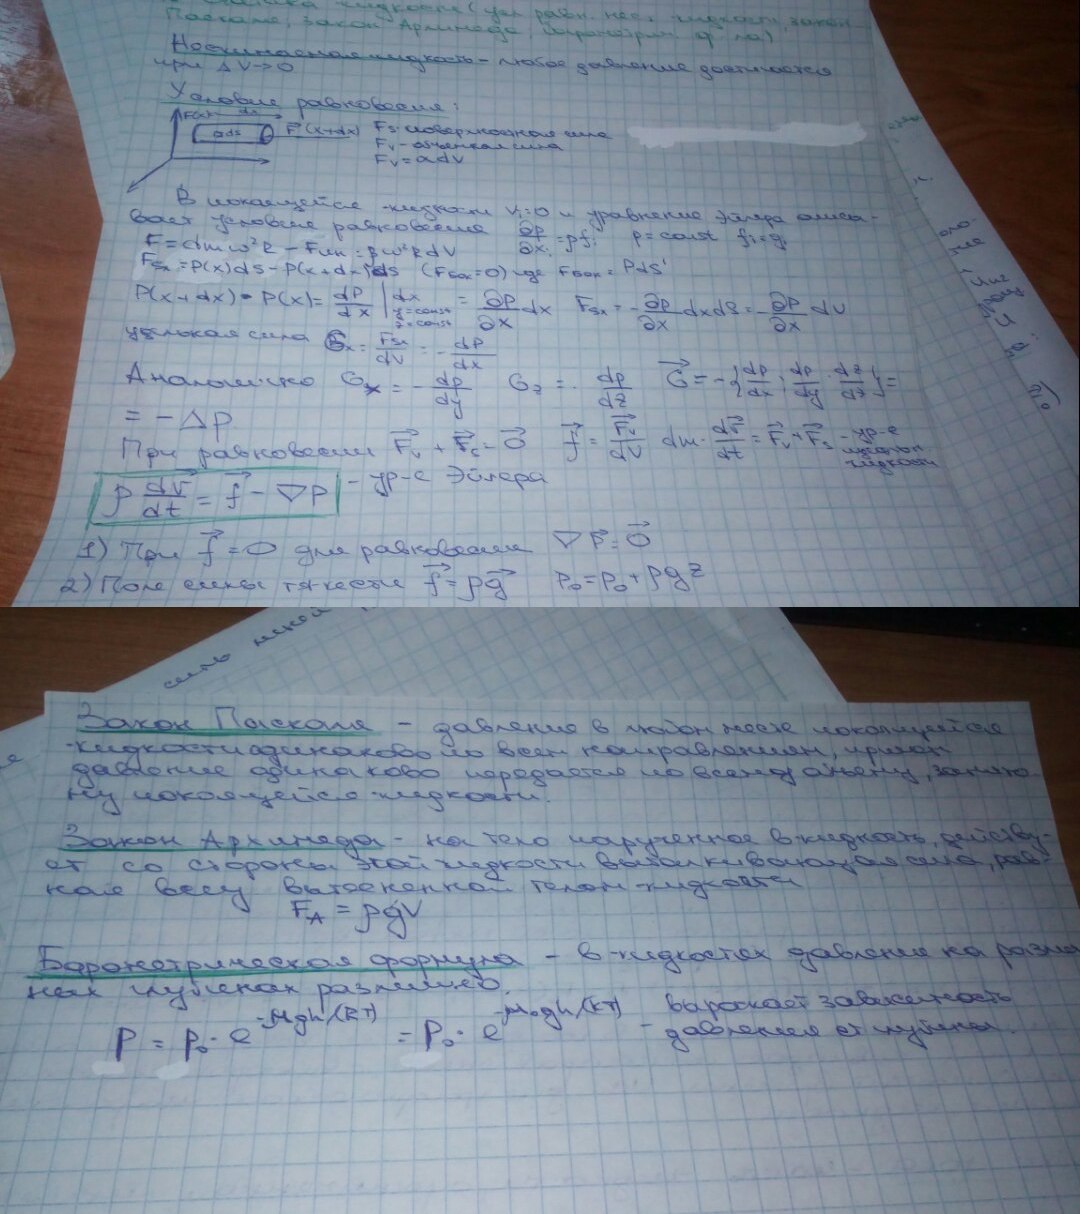 Статика жидкости (усл. равн. нес. жидкости, закон
Паскаля, закон Архимеда, барометрич. ф-ла)
Несжимаемая жидкость - любое давление достигается
при ΔV→0
Условие равновесия:
F(x) dx
ads F(x+dx) Fs - поверхностная сила
Fv - объемная сила
Fv = adV
В покоящейся жидкости Vi=0 и уравнение Эйлера описы-
вает условие равновесия ∂p/∂xi = ρfi ρ=const fi=gi
F=dmω²R - Fцн = ρω²RdV
Fsx=P(x)dS-P(x+dx)dS (Fбок=0) где Fбок = PdS'
P(x+dx)-P(x)= dP/dx | y=const z=const dx = ∂P/∂x dx Fsx = -∂P/∂x dxdS = -∂P/∂x dV
удельная сила Gx = Fsx/dV = -dP/dx
Аналогично Gx = -dp/dy Gz = - dp/dz G⃗ = -{dp/dx; dp/dy; dz/dz} =
= -Δp
При равновесии F⃗v + F⃗s = 0⃗ f⃗ = F⃗v/dV dm· dv⃗/dt = F⃗v+F⃗s - ур-е
жидкости
ρ dv⃗/dt = f⃗ - ∇P - ур-е Эйлера
1) При f⃗=0 для равновесия ∇P=0⃗
2) Поле силы тяжести f⃗=ρg⃗ P₀=P₀+ρgz
Закон Паскаля - давление в любом месте покоящейся
жидкости одинаково по всем направлениям, причем
давление одинаково передается по всему объему, занято-
му покоящейся жидкостью.
Закон Архимеда - на тело погруженное в жидкость, действу-
ет со стороны этой жидкости выталкивающая сила, рав-
ная весу вытесненной телом жидкости
F_A = ρgV
Барометрическая формула - в жидкостях давление на разли
ных глубинах различно.
P = P₀·e^(-Mgh/(RT)) = P₀·e^(-M₀gh/(kT)) - выражает зависимость
давления от глубины.